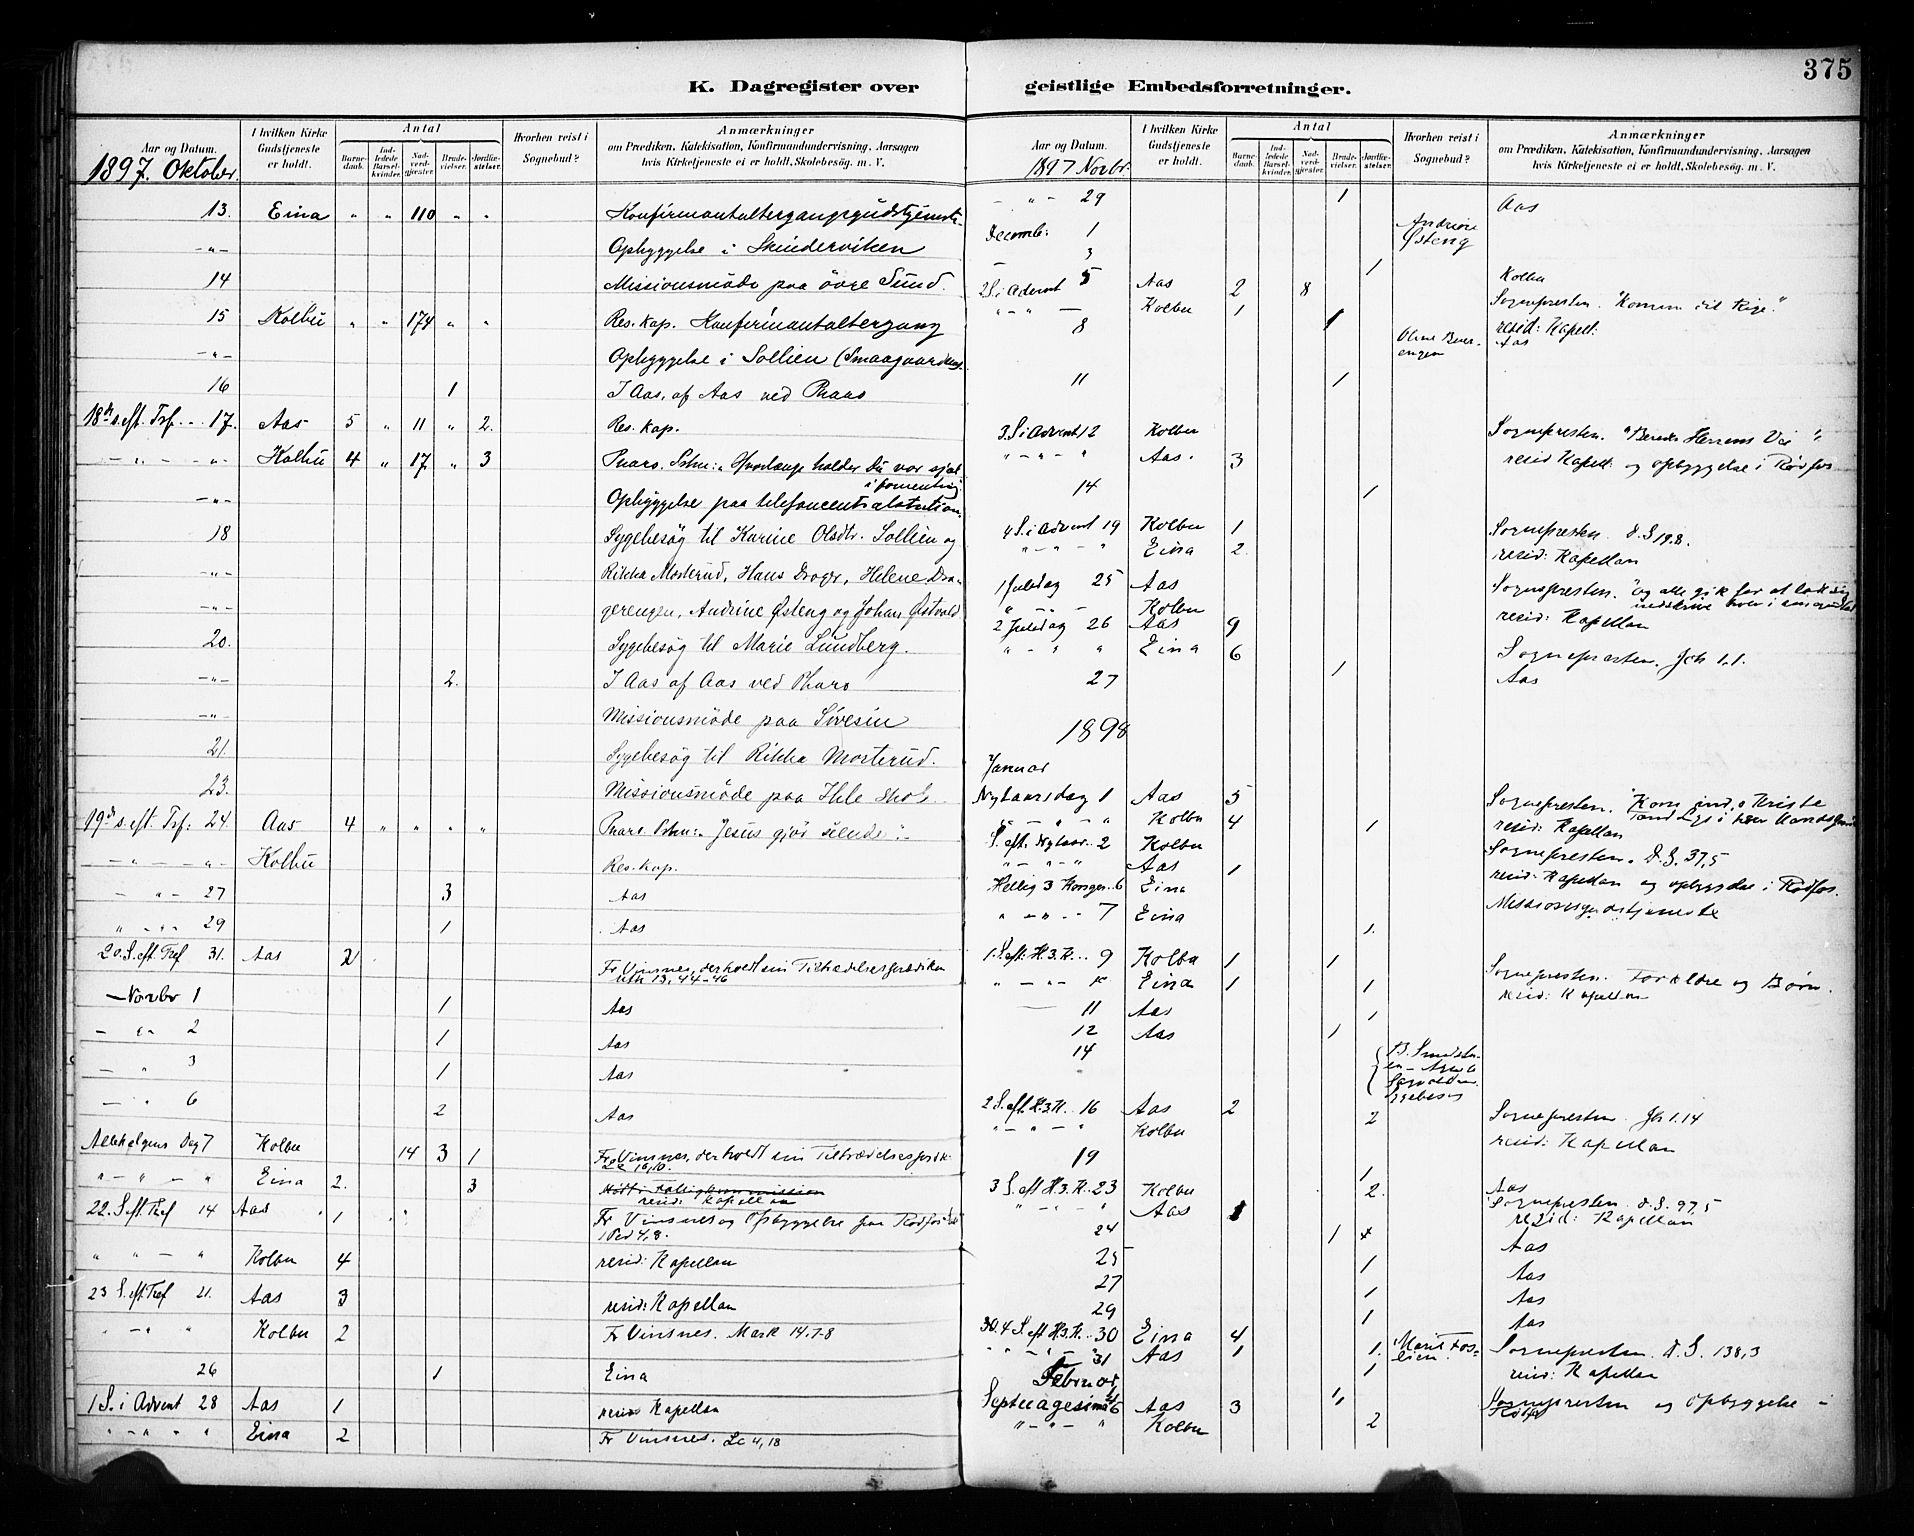 375
K. Dagregister over
Aar og Datum.
I hvilken Kirke Gudstjeneste er holdt.
Antal
Barnedaab.
Indledede Barselkvinder.
Nadverdgjester.
Brudevielser.
Jordfæstelser.
Hvorhen reist i Sognebud?
Anmærkninger
om Prædiken, Katekisation, Konfirmandundervisning, Aarsagen
hvis Kirketjeneste ei er holdt, Skolebesög. m. V.
1897. Oktober.
13. Eina " " 110 " " Konfirmantaltergangsgudstjeneste
-"- Opbyggelse i Skinderviken
14 Missionsmöde paa övre Sund.
15 Kolbu " " 174 " " Res. kap. Konfirmantaltergang
-"- Opbyggelse i Sollien (Smaagaardene)
16 1 I Aas, af Aas ved Pharo
18de s. eft. Tref. 17. Aas 5 " 11 " 2. Res. kap.
- " - " - " Kolbu 4 " 17 " 3 Pharo. Hvorlænge holder Du vor sjæl
i forventning
-"- Opbyggelse paa telefoncentralstation.
18 Sygebesøg til Karine Olsdtr. Sollien og
-"- Rikka Mosterud, Hans Dreger, Helene Dra-
-"- gerengen, Andrine Østeng og Johan Østvold
20. Sygebesøg til Marie Lundberg.
-"- 2. I Aas af Aas ved Pharo
-"- Missionsmöde paa Sivesin
21. Sygebesøg til Rikka Mosterud.
23. Missionsmöde paa Ihle skole
19de s. eft. Tref: 24. Aas 4 " " " " Pharo. Jesus gjør seende
- " - " - " Kolbu Res. kap.
- " - 27 3 Aas
" - " - 29 1 Aas
20. S. eft. Tref 31. Aas 2 Fr Vinsnes, der holdt sin Tiltrædelsesprædiken
Mth 13, 44-46
Novbr 1 1 Aas
- " - 2 1 Aas
- " 3 1 Aas
- " 6 2 Aas
Allehelgens Dag 7 Kolbu 14 3 1 Fr Vinsnes, der holdt sin Tiltrædelsespræd.
Lc 16,10.
" - " - " Eina 2. 3 resid: Kapellan
22. S. eft. Tref 14 Aas 1 Fr Vinsnes og Opbyggelse paa Rødfos
1 Ped 4,8.
" " - " Kolbu 4 resid: Kapellan
23 S. eft. Tref 21. Aas 3 resid: Kapellan
" - " - " Kolbu 2 Fr Vinsnes. Mark 14.1-8
26 1 Eina
1 S. i Advent 28 Aas 1 resid Kapellan
" - " - " Eina 2 Fr Vinsnes. Lc 4,18
geistlige Embedsforretninger.
Aar og Datum.
I hvilken Kirke Gudstjeneste er holdt.
Antal
Barnedaab.
Indledede Barselkvinder.
Nadverdgjester.
Brudevielser.
Jordfæstelser.
Hvorhen reist i Sognebud?
Anmærkninger
om Prædiken, Katekisation, Konfirmandundervisning, Aarsagen
hvis Kirketjeneste ei er holdt, Skolebesög. m. V.
1897 Novbr.
- " - 29 1 Aas
Decemb: 1 Andrine Østeng
- 3 1 Kolbu
2 S. i Advent 5 Aas 2 8 Sognepresten. "Komme dit Rige."
" - " - Kolbu 1 resid: Kapell.
8 1 Oline Aas
11 1
3. S. i Advent 12 Kolbu Sognepresten. "Bered Herrens Vei"
" - " - " Aas. 3 resid Kapell: og opbyggelse i Rødfos
14 1
4 S. i Advent 19 Kolbu 1 Sognepresten. d. S 19.8.
" - " - " Eina 2. resid: Kapellan
1 Juledag 25 Aas Sognepresten. "og alle gik for at lade sig
indskrive hver i
" - " - Kolbu resid: Kapellan
2 Juledag 26 Aas 9
" - " " Eina 6 Sognepresten. Joh 1.1.
27 1 Aas
1898
Januar
Nytaarsdag 1 Aas 5 Sognepresten. "Kom ind, o Kriste
" - " - " Kolbu 4 1 resid: Kapellan
S. eft. Nytaar 2 Kolbu Sognepresten. D. S. 37,5
" - " - " Aas 1 resid: Kapellan og opbyggelse i Rødfos.
Hellig 3 Konger 6 Eina Missionsgudstjeneste
" - " - 7 Eina 1.
1. S. eft. H. 3. K. 9 Kolbu 1 1 Sognepresten. Forældre og Børn.
" - " - " Eina 1 1 resid: Kapellan
11 Aas 1
12 Aas 1
14 Sygebesøg
2 S. eft. H. 3. K. 16 Aas 2 2 Sognepresten. Joh 1.14
" - " - " Kolbu resid: Kapellan
19 1 Aas
3 S. eft H. 3. K. 23 Kolbu 2. Sognepresten. d. S. 97,5
" - " - " Aas 1 resid: Kapellan
24 1 Aas
25 1 Aas
27 1 Aas
29 1 Aas
4 S. eft H. 3. K. 30 Eina 4 1. Marit Fos-
lien. Sognepresten. D. S. 138,3
" - " - " Aas 1 1 resid: Kapellan
31
Februar
Septuagesima 6 Aas 3 1, Sognepresten og Opbyggelse i
" - " - " Kolbu 2 Rødfos